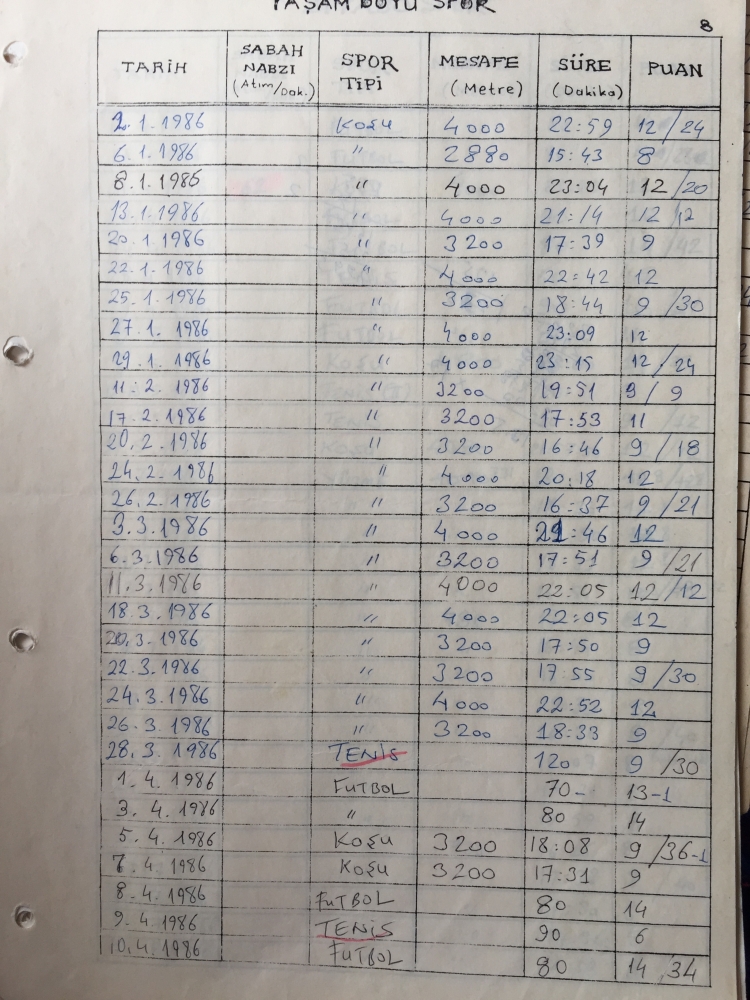 YAŞAM BOYU SPOR
8
TARİH SABAH NABZI (Atım/Dak.) SPOR TİPİ MESAFE (Metre) SÜRE (Dakika) PUAN
2.1.1986 KOŞU 4000 22:59 12/24
6.1.1986 " 2880 15:43 8
8.1.1986 " 4000 23:04 12/20
13.1.1986 " 4000 21:14 12/12
20.1.1986 " 3200 17:39 9
22.1.1986 " 4000 22:42 12
25.1.1986 " 3200 18:44 9/30
27.1.1986 " 4000 23:09 12
29.1.1986 " 4000 23:15 12/24
11.2.1986 " 3200 19:51 9/9
17.2.1986 " 3200 17:53 11
20.2.1986 " 3200 16:46 9/18
24.2.1986 " 4000 20:18 12
26.2.1986 " 3200 16:37 9/21
3.3.1986 " 4000 21:46 12
6.3.1986 " 3200 17:51 9/21
11.3.1986 " 4000 22:05 12/12
18.3.1986 " 4000 22:05 12
20.3.1986 " 3200 17:50 9
22.3.1986 " 3200 17:55 9/30
24.3.1986 " 4000 22:52 12
26.3.1986 " 3200 18:33 9
28.3.1986 TENİS 120 9/30
1.4.1986 FUTBOL 70- 13-1
3.4.1986 " 80 14
5.4.1986 KOŞU 3200 18:08 9/36-1
7.4.1986 KOŞU 3200 17:31 9
8.4.1986 FUTBOL 80 14
9.4.1986 TENİS 90 6
10.4.1986 FUTBOL 80 14/34